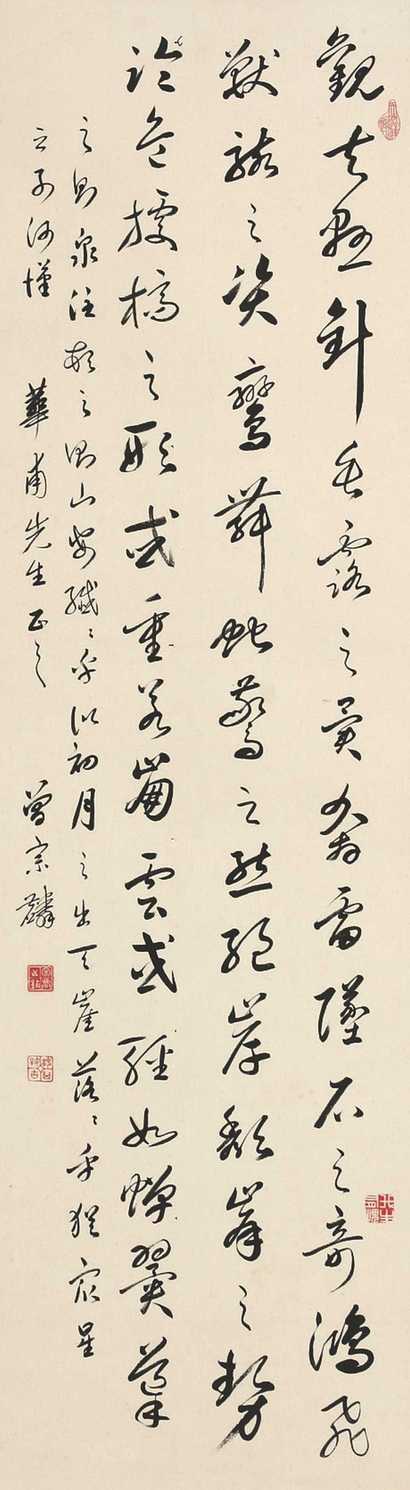 觀夫懸針垂露之異奔雷墜石之奇鴻飛
獸駭之資鸞舞蛇驚之態絕岸頹峯之勢
臨危據槁之形或重若崩雲或輕如蟬翼導
之則泉注頓之則山安纖〻乎似初月之出天崖落〻乎猶眾星
之列河漢 華甫先生正之 曾宗麟